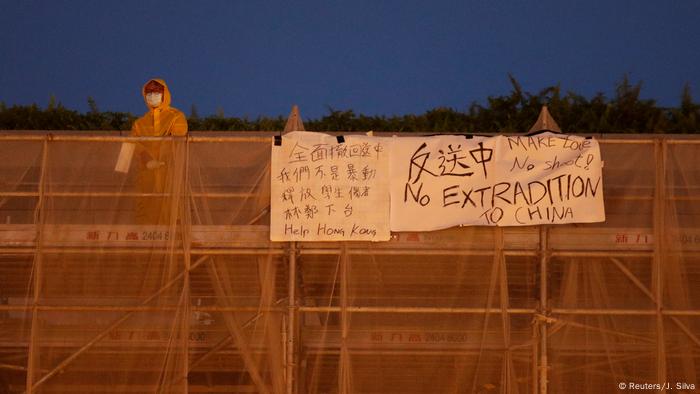 全面撤回送中
我們不是暴動
釋放學生傷者
林鄭下台
Help Hong Kong
反送中
MAKE Love
No shoot!
No EXTRADITION
TO CHINA
新力高 2404 6000
新力高
新力高 2404 6000
© Reuters/J. Silva